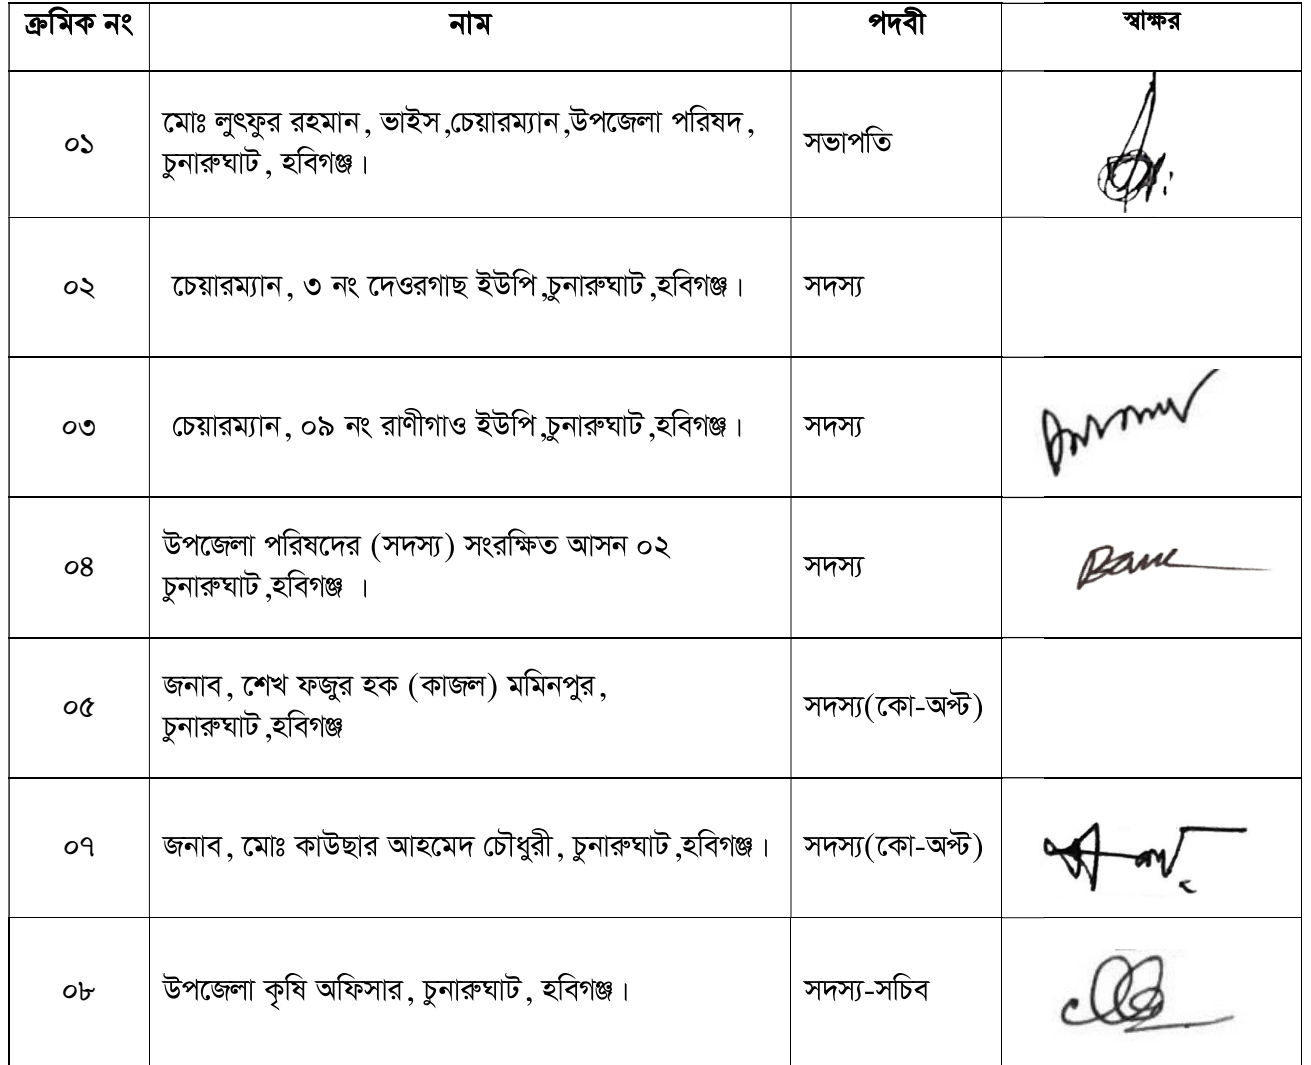 ক্রমিক নং নাম পদবী স্বাক্ষর
০১ মোঃ লুৎফুর রহমান, ভাইস,চেয়ারম্যান,উপজেলা পরিষদ, সভাপতি
চুনারুঘাট, হবিগঞ্জ।
০২ চেয়ারম্যান, ৩ নং দেওরগাছ ইউপি,চুনারুঘাট,হবিগঞ্জ। সদস্য
০৩ চেয়ারম্যান, ০৯ নং রাণীগাও ইউপি,চুনারুঘাট,হবিগঞ্জ। সদস্য
০৪ উপজেলা পরিষদের (সদস্য) সংরক্ষিত আসন ০২ সদস্য
চুনারুঘাট,হবিগঞ্জ ।
০৫ জনাব, শেখ ফজুর হক (কাজল) মমিনপুর, সদস্য(কো-অপ্ট)
চুনারুঘাট,হবিগঞ্জ
০৭ জনাব, মোঃ কাউছার আহমেদ চৌধুরী, চুনারুঘাট,হবিগঞ্জ। সদস্য(কো-অপ্ট)
০৮ উপজেলা কৃষি অফিসার, চুনারুঘাট, হবিগঞ্জ। সদস্য-সচিব